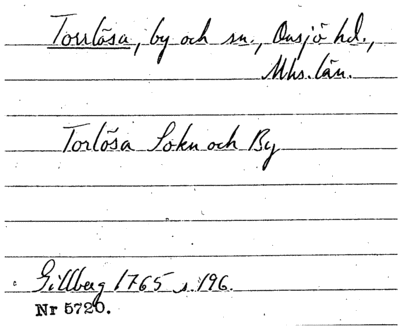 Torrlösa, by och sn., Onsjö hd.,
Mhs. län.
Torlösa Sokn och By
Gillberg 1765 s. 196.
Nr 5720.